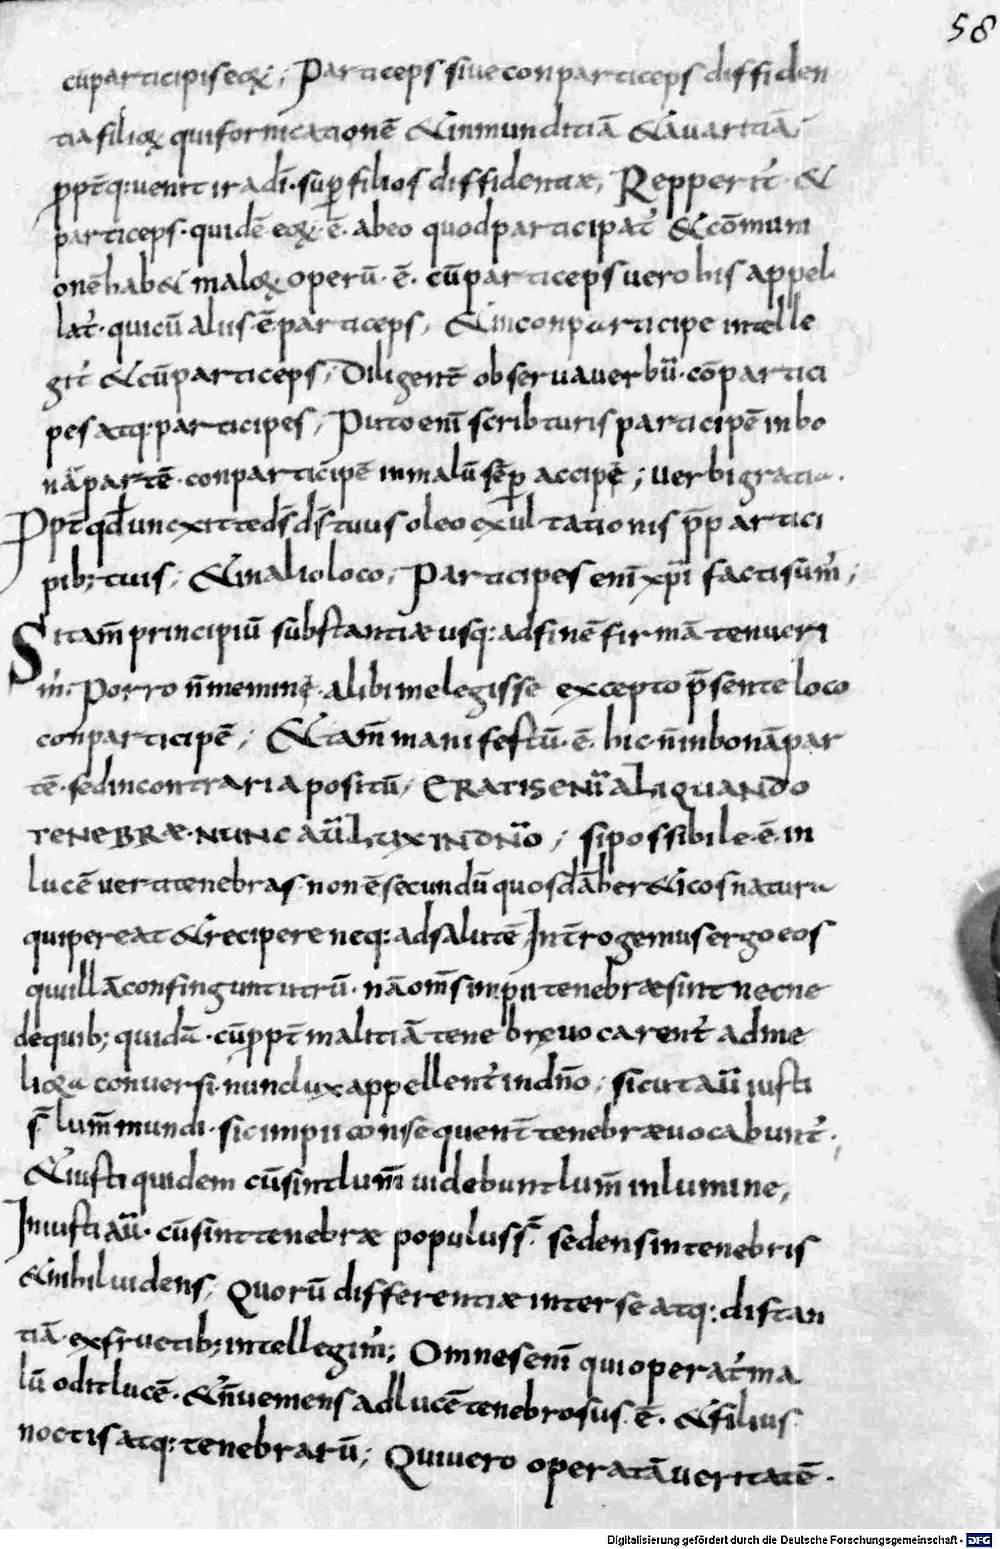 58
cūparticipiseoꝝ; Particeps siue conparticeps diffiden
tiae filioꝝ qui fornicationē &inmunditiā &auaritiā;
ꝓpt̄q: uenit ira dī· suꝑ filios diffidentiae, Repperit̄ &
particeps· quidē eoꝝ·ē· abeo quod participat̄ &cōmuni
onē hab& maloꝝ operū·ē· cūparticeps uero his appel
lat̄· quicū aliis·ē particeps, &inconparticipe intelle
git̄ &cūparticeps, Diligent̄ obserua uerbū· cōpartici
pes atq: participes, Puto enī scribturis participē inbo
nā partē· conparticipē inmalū sēꝑ accipē; uerbi gratia·
Ꝓpt̄ qđ unexit te dš dš tuus oleo exultationis p̄ partici
pib; tuis; &inalio loco, Participes enī xp̄i facti sum̄;
Si tam̄ principiū substantiae usq: ad finē firmā tenueri
m̄; Porro n̄ meminę· alibi me legisse excepto p̄sente loco
conparticipē; &tam̄ manifestū·ē· hic· n̄ inbonā par
tē· sed incontraria positū, ERATIS ENĪ ALIQUANDO
TENEBRAE· NUNC AŪ LUX IN DNŌ; si possibile·ē· in
lucē uerti tenebras· non ē secundū quosdā her&icos natura
qui pereat &recipere neq: ad salutē Int̄rogemus ergo eos
qui illā confingunt utrū· nā om̄s impii tenebrae sint necne
de quib; quidā· cū ꝓpt̄ malitiā tenebrę uocarent̄ ad me
lioꝝa conuersi· nunc lux appellent̄ in dn̄o; sicut aū iusti
s̄ lum̄ mundi· sic impii consequent̄ tenebrae uocabunt̄·;
&iusti quidem cū sint lum̄ uidebunt lum̄ in lumine,
Iniusti aū· cū sint tenebrae populus s̄· sedens in tenebris
&nihil uidens, Quorū differentiae inter se atq: distan
tiā· ex fructib; intellegim̄; Omnes enī qui operat̄ ma
lū odit lucē· &n̄ ueniens ad lucē tenebrosus·ē· &filius
noctis atq: tenebrarū; Qui uero operat̄ ā ueritatē·
Digitalisierung gefördert durch die Deutsche Forschungsgemeinschaft - DFG